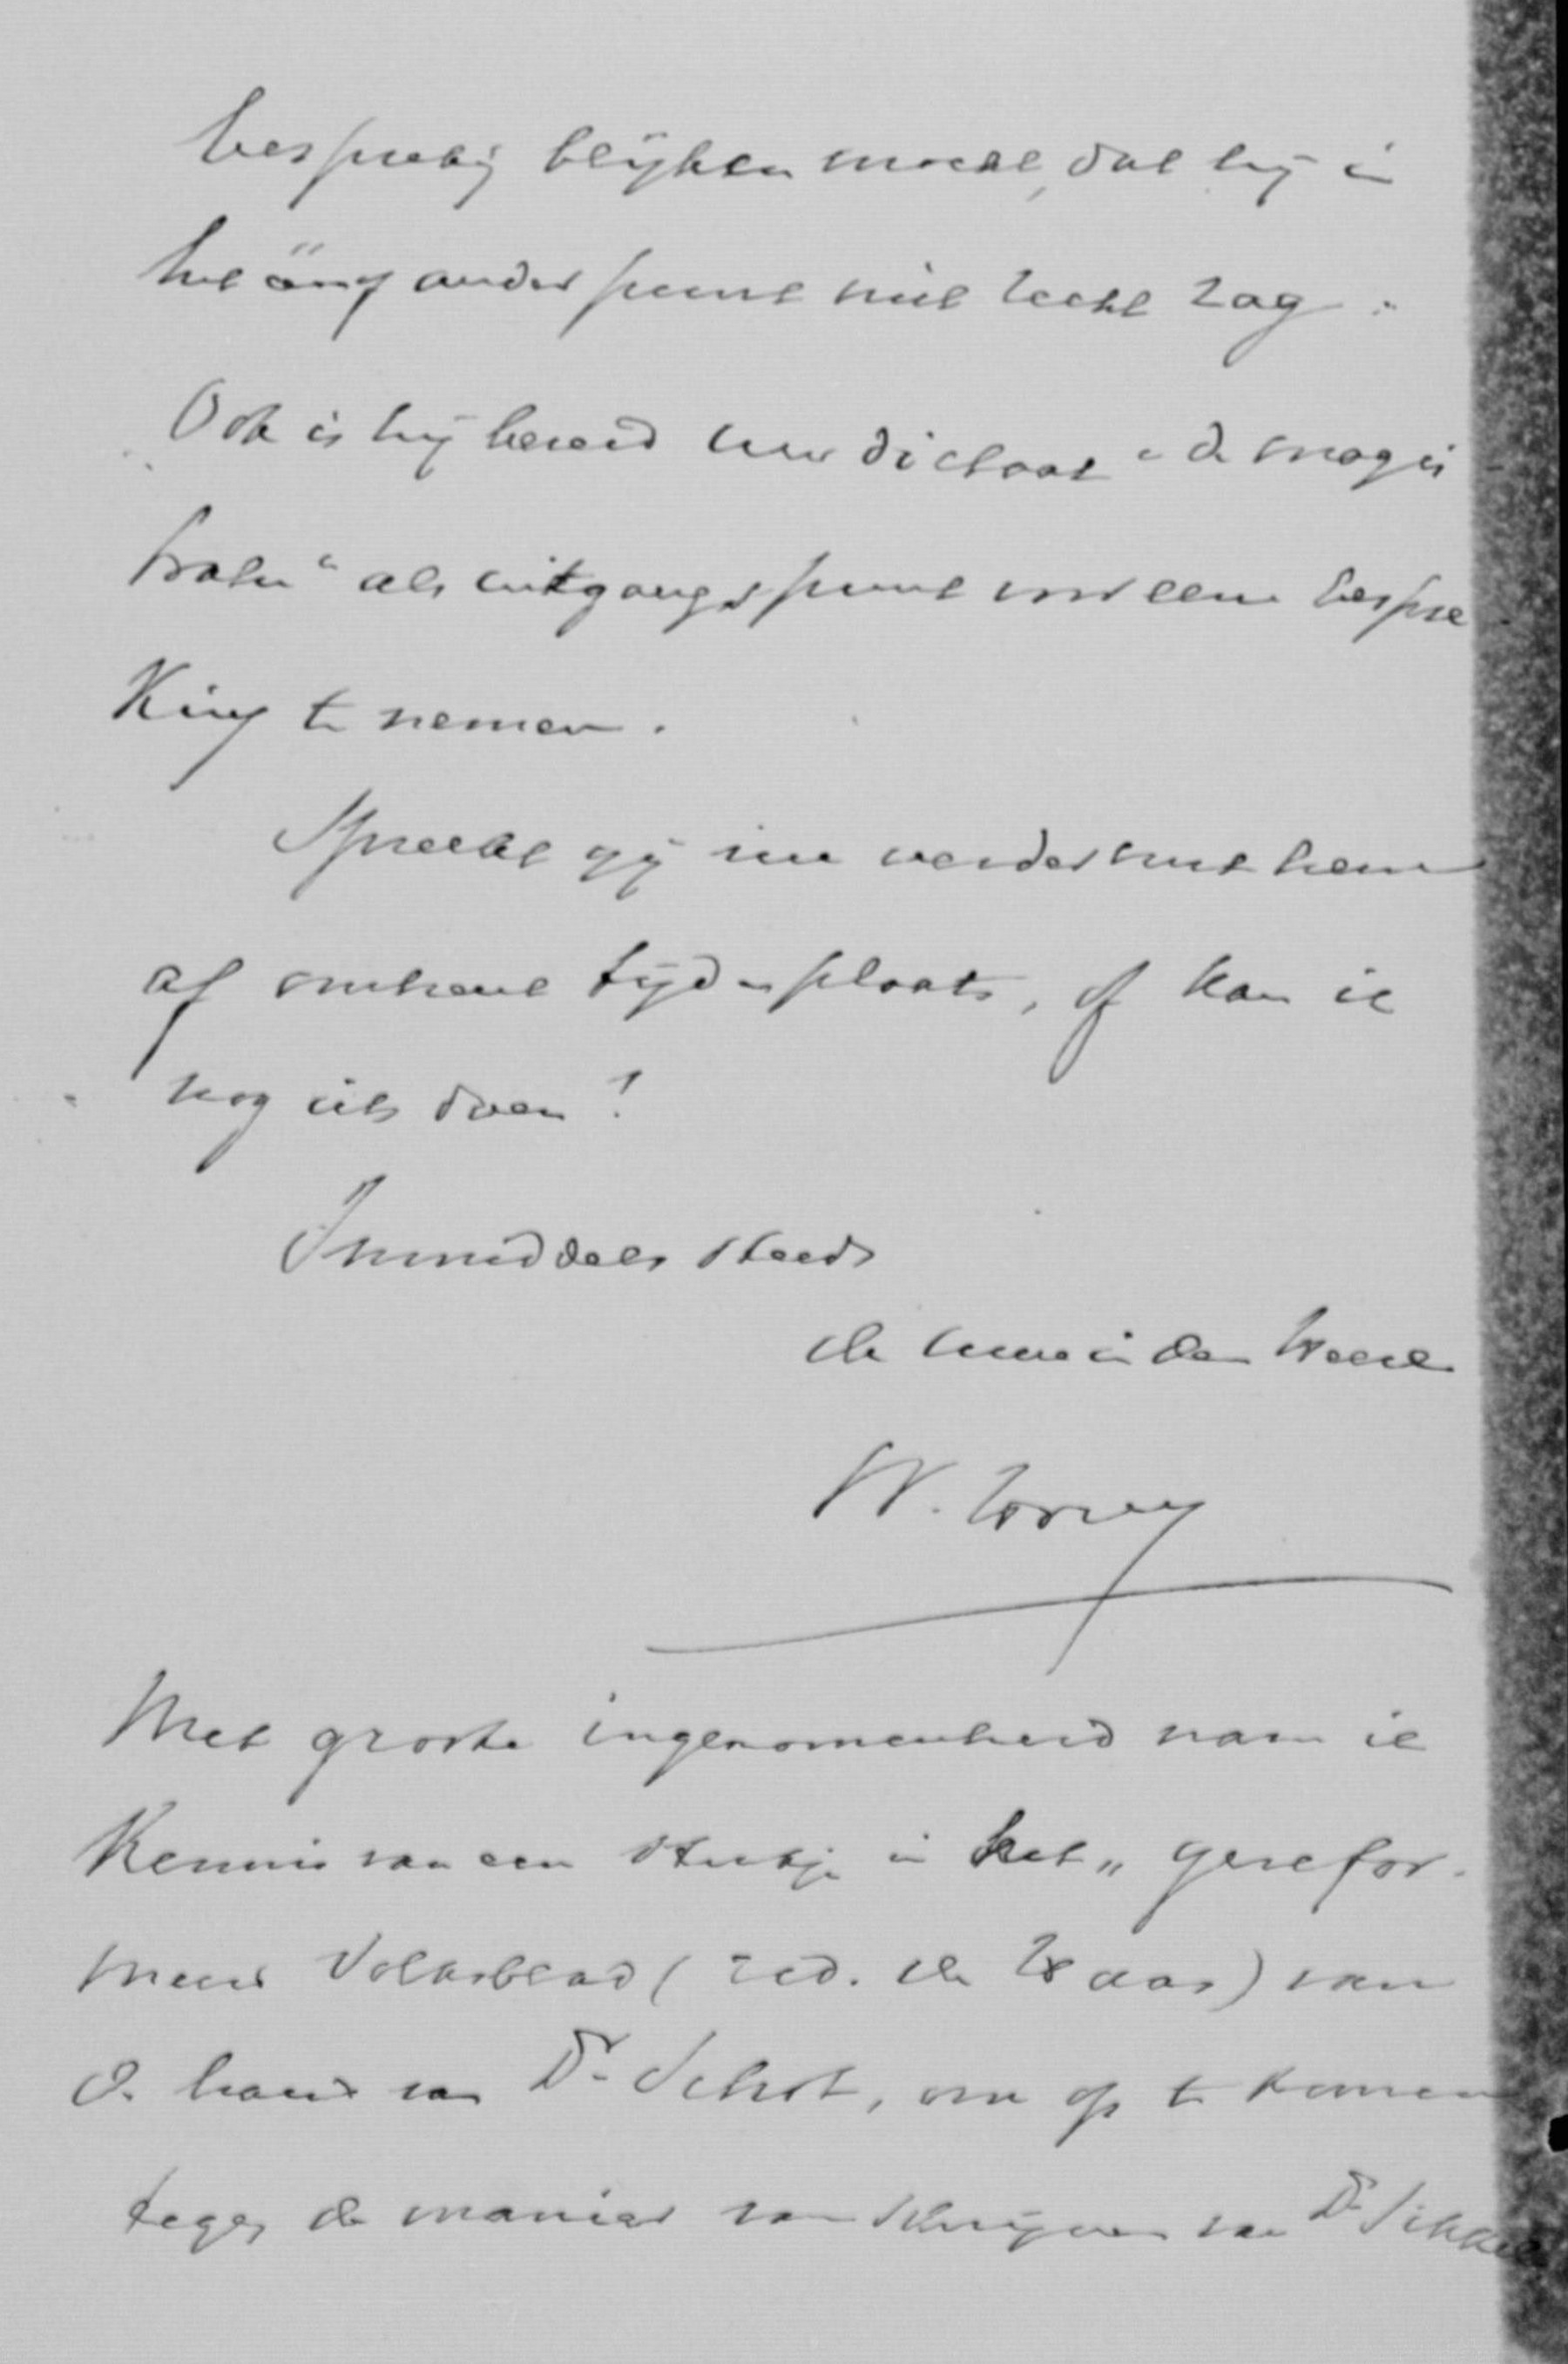 bespreking blijken mocht, dat hij in
het een of ander punt niet recht zag.
Ook is hij bereid uw dictaat "de magis
tratu" als uitgangspunt voor eene bespre
king te nemen.
Spreekt gij nu verder met hem
af omtrent tijd en plaats, of kan ik
nog iets doen?
Inmiddels steeds
de uwe in den Heere
W.
Met groote ingenomenheid nam ik
kennis van een stukje in het „gerefor-
meerd Volksblad (red. de Waar) van
de hand van Dr. Schot, om op te komen
tegen de manier van schrijven van Dr. Sikkel